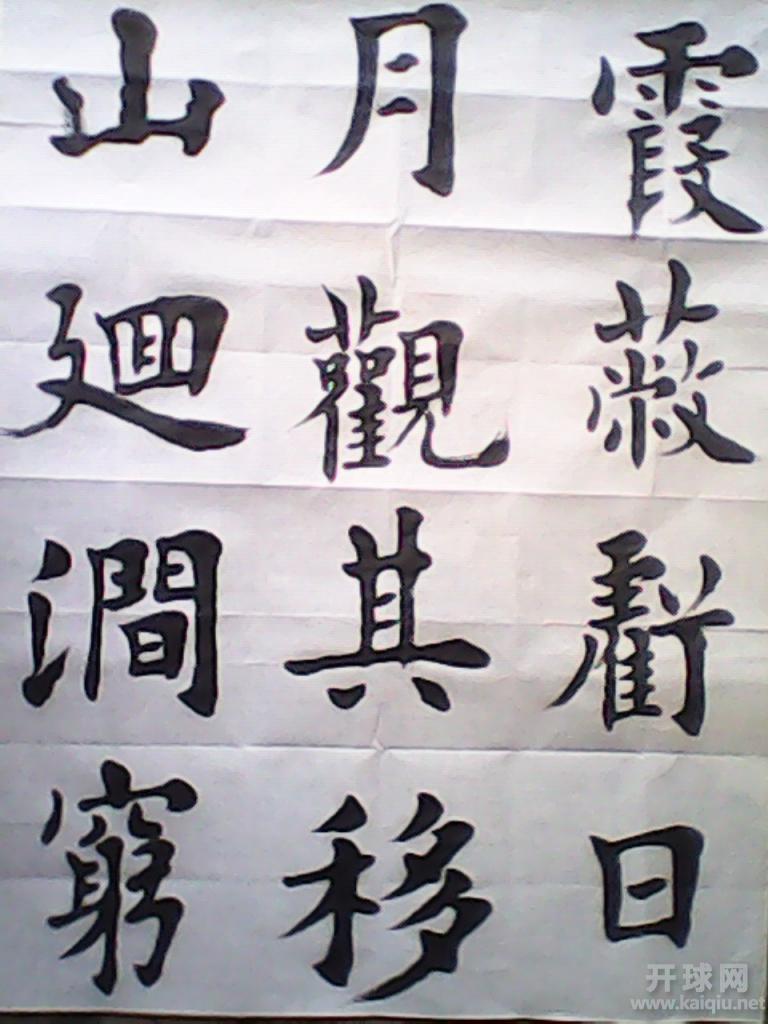 霞蔽虧日
月觀其移
山廻澗窮
开球网
www.kaiqiu.net